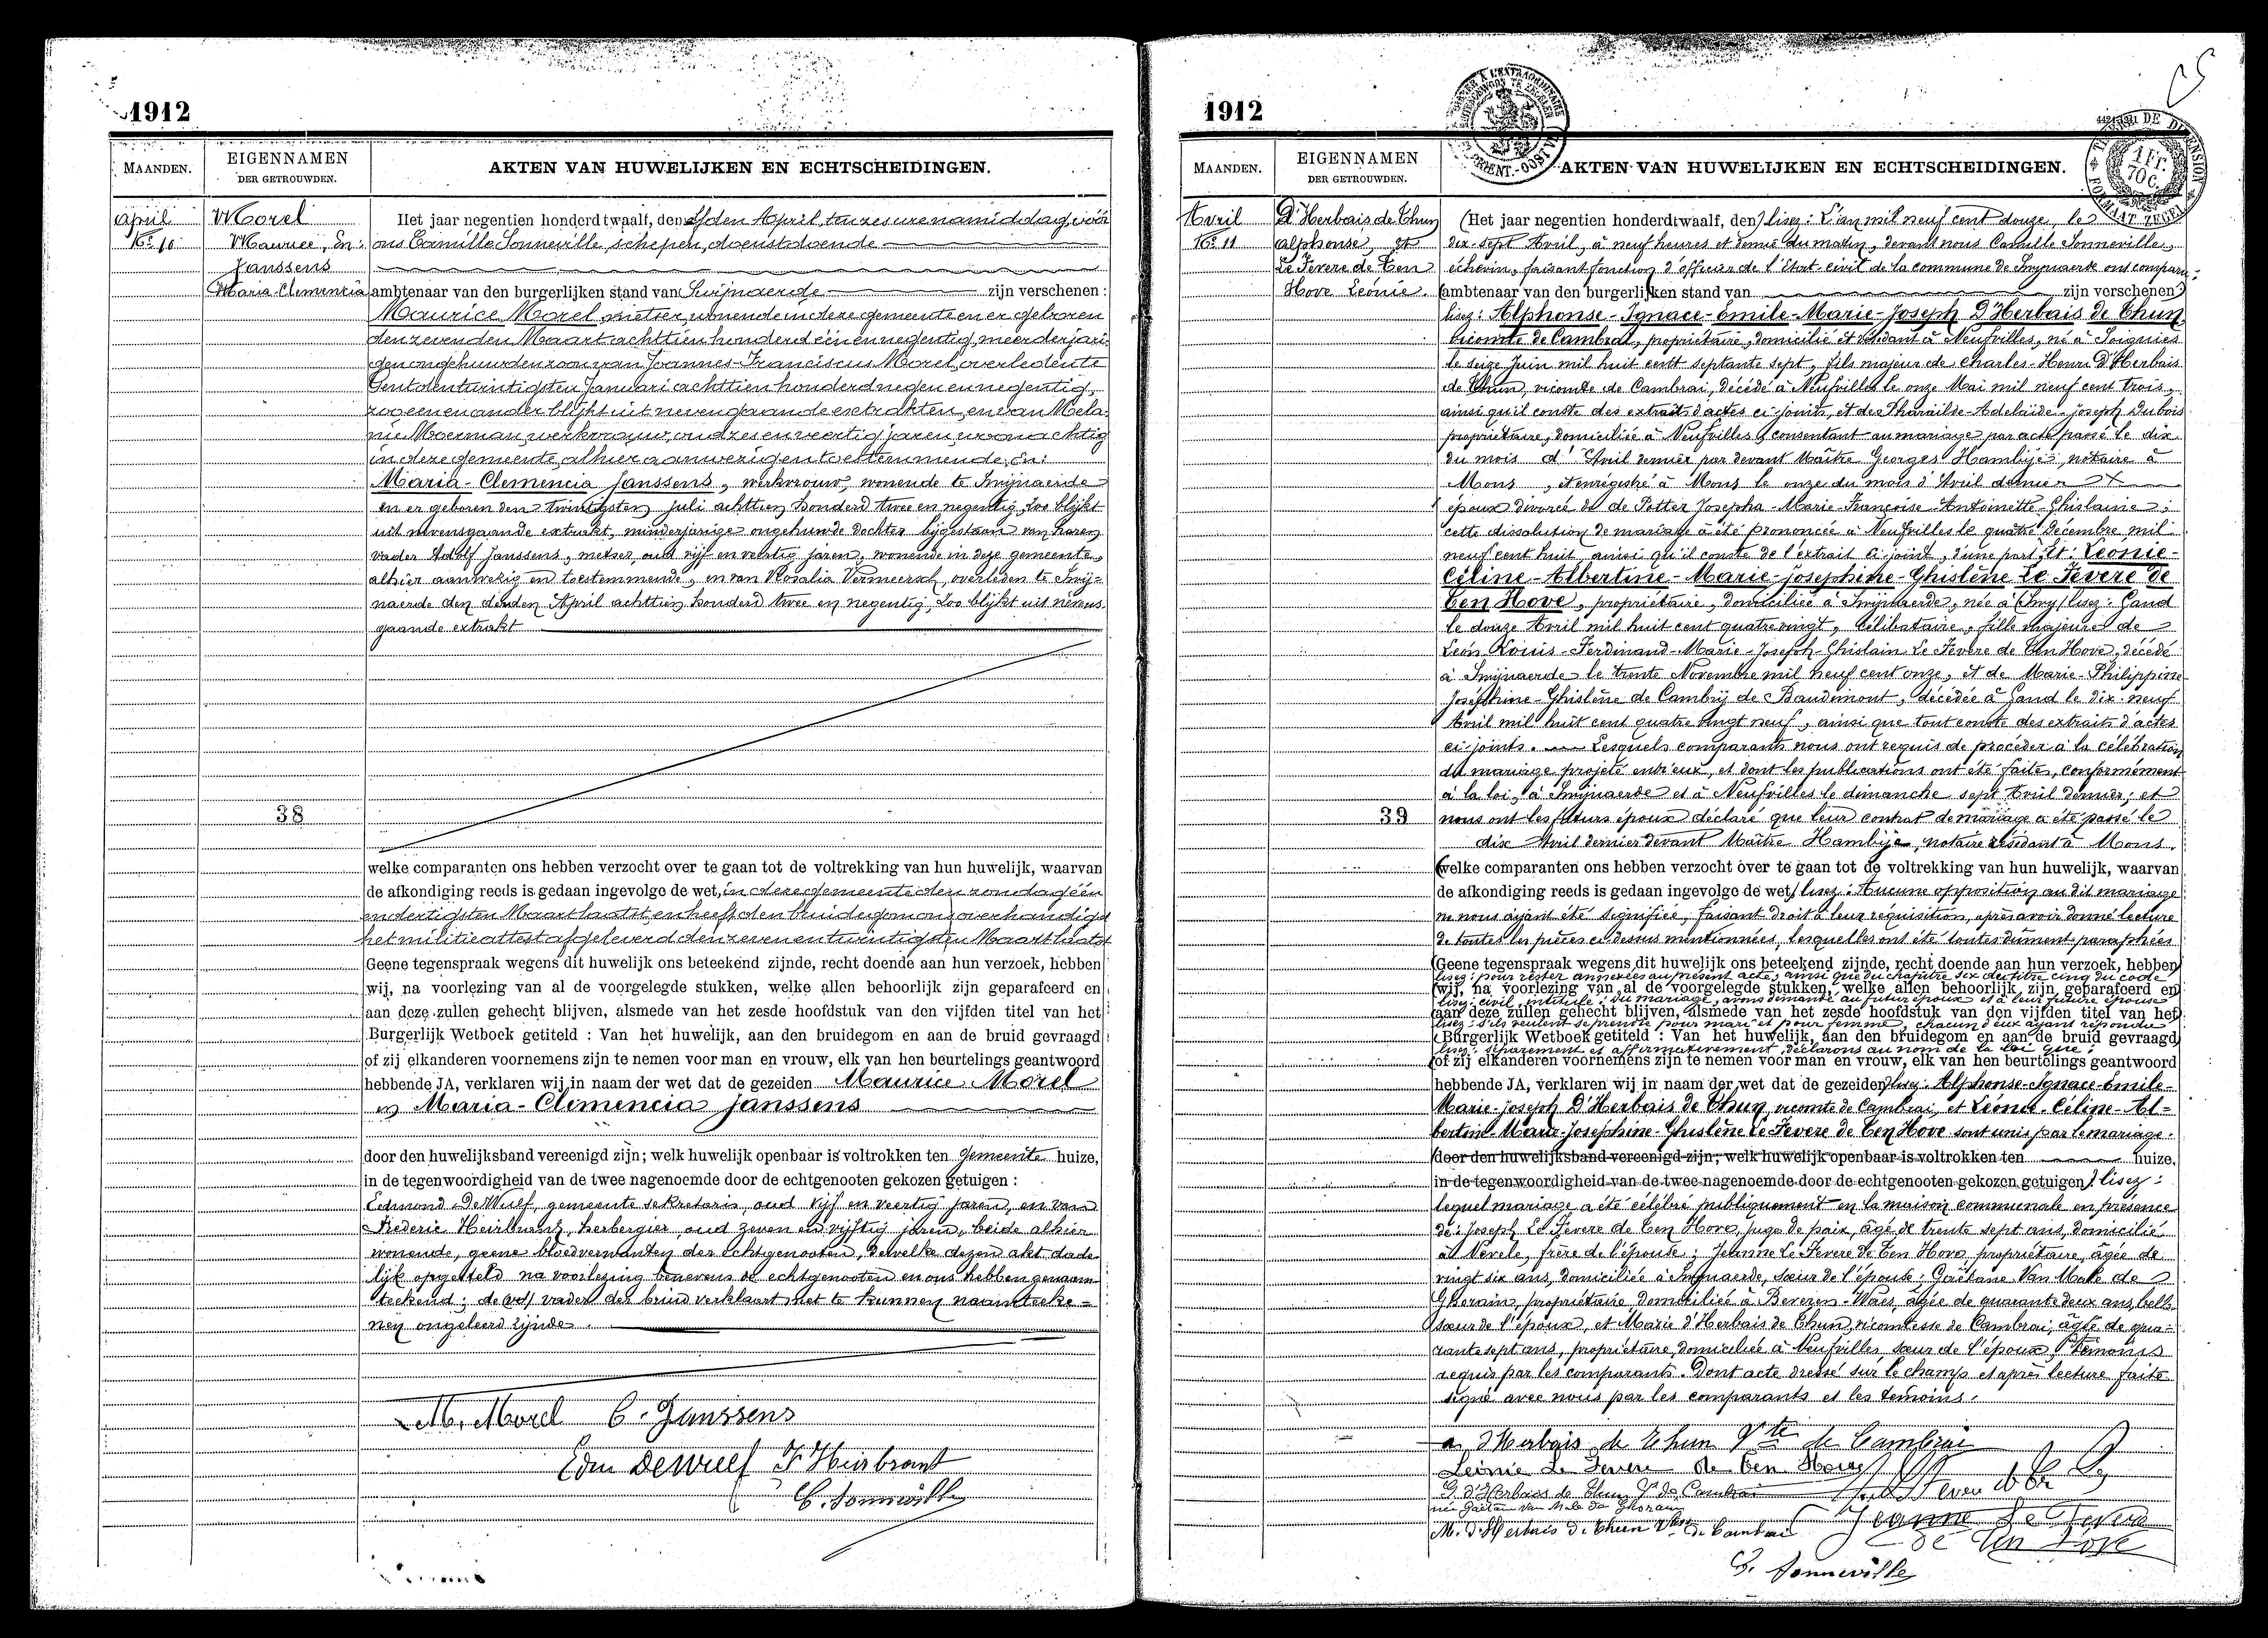 1912
MAANDEN.
EIGENNAMEN
DER GETROUWDEN.
AKTEN VAN HUWELIJKEN EN ECHTSCHEIDINGEN.
april
No 10
Morel
Maurice, En:
Janssens
Maria-Clemencia
38
Het jaar negentien honderd twaalf, den elfden April, ten zes ure namiddag, voor
ons Camille Sonneville, schepen, dienstdoende
ambtenaar van den burgerlijken stand van Swijnaerde zijn verschenen:
Maurice Morel, metser, wonende in deze gemeente en er geboren
den zevenden Maart achttien honderd één en negentig, meerderjari-
gen ongehuwden zoon van Joannes-Franciscus Morel, overleden te
Gent den twintigsten Januari achttien honderd negen en negentig,
zoo een en ander blijkt uit nevengaande extrakten, en van Mela-
nie Moerman, werkvrouw, oud zes en veertig jaren, woonachtig
in deze gemeente, alhier aanwezig en toestemmende, En:
Maria-Clemencia Janssens, werkvrouw, wonende te Swijnaerde
en er geboren den twintigsten juli achttien honderd twee en negentig, Zoo blijkt
uit nevensgaande extrakt, minderjarige ongehuwde dochter bijgestaan van haren
vader Adolf Janssens, metser, oud vijf en veertig jaren, wonende in deze gemeente,
alhier aanwezig en toestemmende, en van Rosalia Vermeersch, overleden te Swij-
naerde den derden April achttien honderd twee en negentig, Zoo blijkt uit nevens
gaande extrakt
welke comparanten ons hebben verzocht over te gaan tot de voltrekking van hun huwelijk, waarvan
de afkondiging reeds is gedaan ingevolge de wet, in deze gemeente den zondag één
en dertigsten Maart laatst, en heeft den bruidegom ons overhandigd
het militieattest afgeleverd den zeven en twintigsten Maart laatst
Geene tegenspraak wegens dit huwelijk ons beteekend zijnde, recht doende aan hun verzoek, hebben
wij, na voorlezing van al de voorgelegde stukken, welke allen behoorlijk zijn geparafeerd en
aan deze zullen gehecht blijven, alsmede van het zesde hoofdstuk van den vijfden titel van het
Burgerlijk Wetboek getiteld : Van het huwelijk, aan den bruidegom en aan de bruid gevraagd
of zij elkanderen voornemens zijn te nemen voor man en vrouw, elk van hen beurtelings geantwoord
hebbende JA, verklaren wij in naam der wet dat de gezeiden Maurice Morel
en Maria-Clemencia Janssens
door den huwelijksband vereenigd zijn; welk huwelijk openbaar is voltrokken ten Gemeente huize,
in de tegenwoordigheid van de twee nagenoemde door de echtgenooten gekozen getuigen :
Edmond DeWulf, gemeente sekretaris, oud vijf en veertig jaren, en van
Frederic Heirbrant, herbergier, oud zeven en vijftig jaren, beide alhier
wonende, geene bloedverwanten der echtgenooten, dewelke dezen akt dade-
lijk opgesteld na voorlezing benevens de echtgenooten en ons hebben genaam-
teekend; de vader der bruid verklaart niet te kunnen naamteeke-
nen ongeleerd zijnde.
M. Morel C. Janssens
Edm DeWulf F Heirbrant
C. Sonneville
1912
MAANDEN.
EIGENNAMEN
DER GETROUWDEN.
AKTEN VAN HUWELIJKEN EN ECHTSCHEIDINGEN.
1 Fr.
70 C.
Avril
No 11
D'Herbais de Thun
alphonse, et
Le Fevere de Ten
Hove Léonie.
39
(Het jaar negentien honderd twaalf, den) lisez: L'an mil neuf cent douze, le
dix-sept Avril, à neuf heures et demie du matin, devant nous Camille Sonneville,
échevin, faisant fonction d'officier de l'Etat-civil de la commune de Swijnaerde ont comparu:
(ambtenaar van den burgerlijken stand van zijn verschenen)
lisez: Alphonse-Ignace-Emile-Marie-Joseph D'Herbais de Thun,
vicomte de Cambrai, propriétaire, domicilié et résidant à Neufvilles, né à Soignies
le seize Juin mil huit cent septante sept, fils majeur de Charles-Henri D'Herbais
de Thun, vicomte de Cambrai, décédé à Neufvilles le onze Mai mil neuf cent trois,
ainsi qu'il conste des extraits d'actes ci-joints, et de Pharaïlde-Adelaïde-Joseph Dubois
propriétaire, domiciliée à Neufvilles, consentant au mariage par acte passé le dix
du mois d'Avril dernier par devant Maître Georges Hambije, notaire à
Mons, et enregistré à Mons le onze du mois d'Avril dernier
époux divorcé de de Potter Josepha-Marie-Françoise-Antoinette-Ghislaine;
cette dissolution de mariage a été prononcée à Neufvilles le quatre Décembre mil
neuf cent huit, ainsi qu'il conste de l'extrait ci-joint, d'une part, Et: Léonie-
Céline-Albertine-Marie-Josephine-Ghislène Le Fevere de
Ten Hove, propriétaire, domiciliée à Swijnaerde, née à (Swy) lisez: Gand
le douze Avril mil huit cent quatre vingt, célibataire, fille majeure de
Léon Louis-Ferdinand-Marie-Joseph-Ghislain Le Fevere de Ten Hove, décédé
à Swijnaerde le trente Novembre mil neuf cent onze, et de Marie-Philippine-
Joséphine-Ghislène de Cambrij de Baudimont, décédée à Gand le dix-neuf
Avril mil huit cent quatre vingt neuf, ainsi que tout conste des extraits d'actes
ci-joints. Lesquels comparants nous ont requis de procéder à la célébration
du mariage projeté entr'eux, et dont les publications ont été faites, conformément
à la loi, à Swijnaerde et à Neufvilles le dimanche sept Avril dernier; et
nous ont les futurs époux déclaré que leur contrat de mariage a été passé le
dix Avril dernier devant Maître Hambije, notaire résidant à Mons.
(welke comparanten ons hebben verzocht over te gaan tot de voltrekking van hun huwelijk, waarvan
de afkondiging reeds is gedaan ingevolge de wet) lisez: Aucune opposition au dit mariage
ne nous ayant été signifiée, faisant droit à leur réquisition, après avoir donné lecture
de toutes les pièces ci-dessus mentionnées, lesquelles ont été toutes dûment paraphées
(Geene tegenspraak wegens dit huwelijk ons beteekend zijnde, recht doende aan hun verzoek, hebben)
lisez: pour rester annexées au présent acte, ainsi que du chapitre six du titre cinq du code
(wij, na voorlezing van al de voorgelegde stukken, welke allen behoorlijk zijn geparafeerd en)
lisez: civil, intitulé: du mariage, avons demandé au futur époux et à leur future épouse
(aan deze zullen gehecht blijven, alsmede van het zesde hoofdstuk van den vijfden titel van het)
lisez: s'ils veulent se prendre pour mari et pour femme, chacun d'eux ayant répondu
(Burgerlijk Wetboek getiteld : Van het huwelijk, aan den bruidegom en aan de bruid gevraagd)
lisez: séparément et affirmativement, déclarons au nom de la loi que:
(of zij elkanderen voornemens zijn te nemen voor man en vrouw, elk van hen beurtelings geantwoord
hebbende JA, verklaren wij in naam der wet dat de gezeiden) lisez: Alphonse-Ignace-Emile-
Marie-Joseph D'Herbais de Thun, vicomte de Cambrai, et Léonie-Céline-Al-
bertine-Marie-Josephine-Ghislène Le Fevere de Ten Hove sont unis par le mariage.
(door den huwelijksband vereenigd zijn; welk huwelijk openbaar is voltrokken ten huize,
in de tegenwoordigheid van de twee nagenoemde door de echtgenooten gekozen getuigen) lisez:
lequel mariage a été célébré publiquement en la maison communale en présence
de: Joseph Le Fevere de Ten Hove, juge de paix, âgé de trente sept ans, domicilié
à Nevele, frère de l'épouse; Jeanne Le Fevere de Ten Hove, propriétaire, âgée de
vingt six ans, domiciliée à Swijnaerde, sœur de l'épouse; Gaëtane Van Male de
Ghorain, propriétaire domiciliée à Beveren-Waes, âgée de quarante deux ans, belle
sœur de l'époux, et Marie d'Herbais de Thun, vicomtesse de Cambrai, âgée de qua-
rante sept ans, propriétaire, domiciliée à Neufvilles, sœur de l'époux, témoins
requis par les comparants. Dont acte dressé sur le champ et après lecture faite
signé avec nous par les comparants et les témoins.
a. d'Herbais de Thun Vte de Cambrai
Léonie Le Fevere de Ten Hove
G. d'Herbais de Thun Vsse de Cambrai
née Gaëtane Van Male de Ghorain
M. d'Herbais de Thun Vsse de Cambrai
Jeanne Le Fevere
de Ten Hove
C. Sonneville